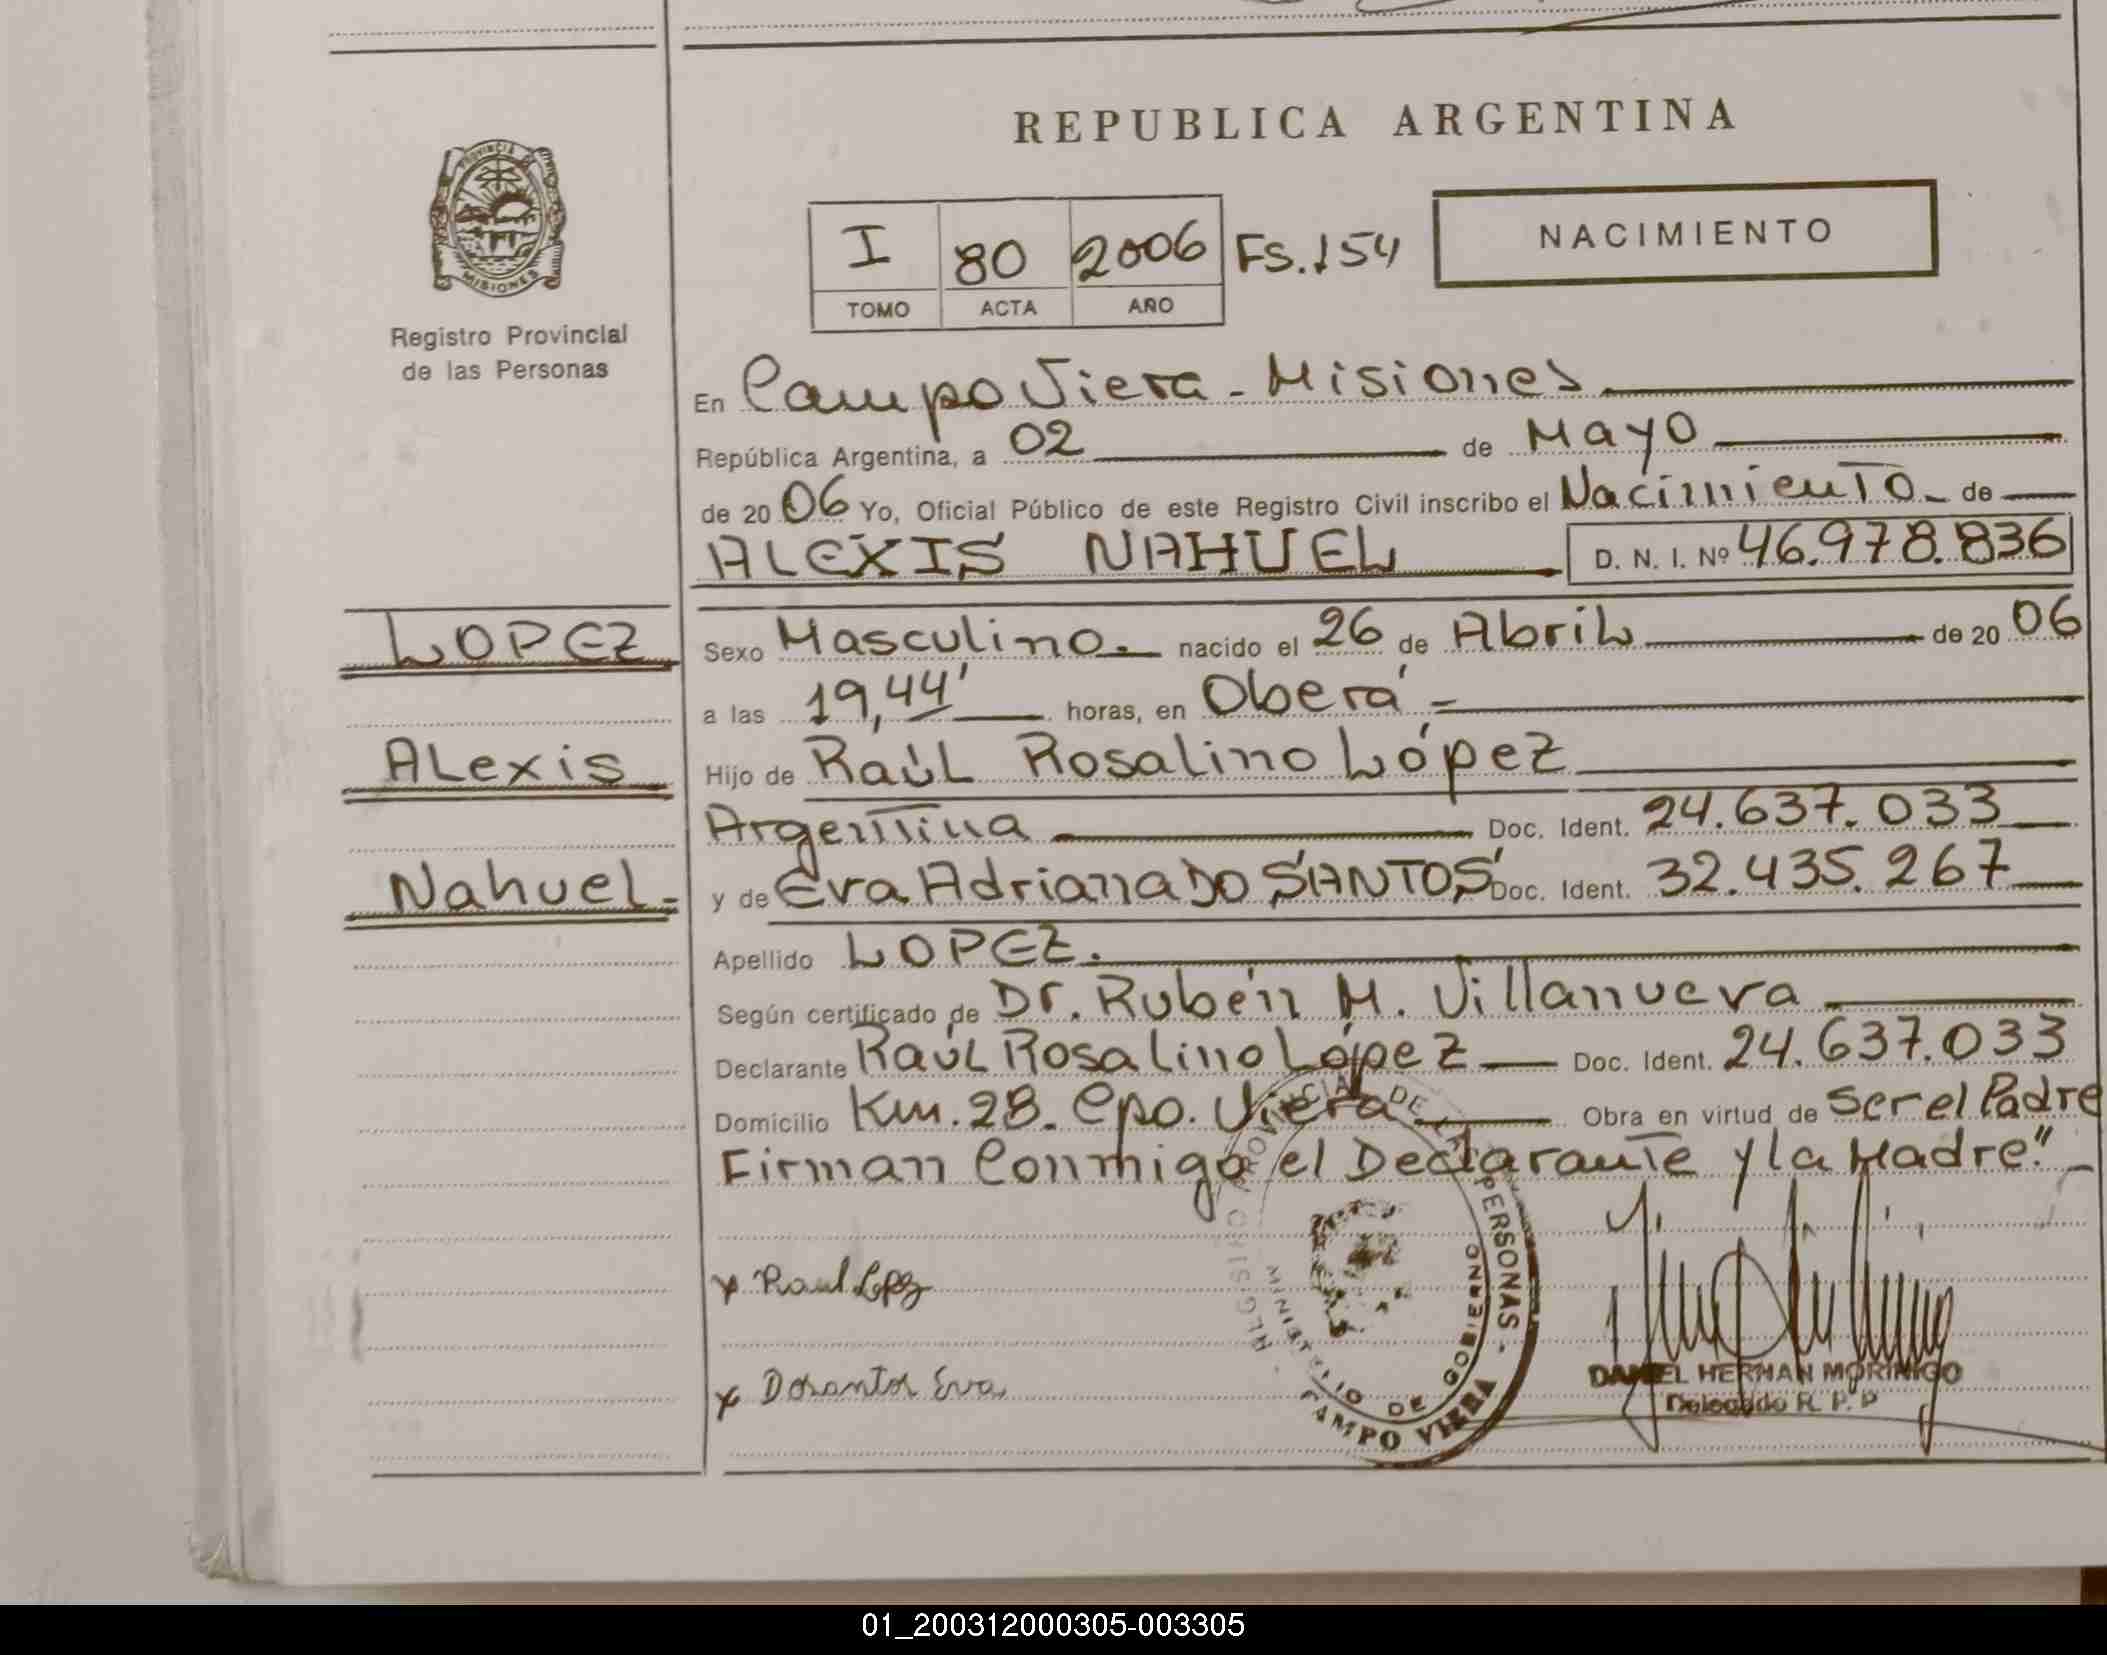 PROVINCIA DE MISIONES
Registro Provincial
de las Personas
REPUBLICA ARGENTINA
I 80 2006 Fs. 154
TOMO ACTA AÑO
NACIMIENTO
En Campo Viera - Misiones
República Argentina, a 02 de Mayo
de 2006 Yo, Oficial Público de este Registro Civil inscribo el Nacimiento - de
ALEXIS NAHUEL D. N. I. Nº 46.978.836
LOPEZ
Alexis
Nahuel -
Sexo Masculino. nacido el 26 de Abril de 2006
a las 19,44' horas, en Oberá -
Hijo de Raúl Rosalino López
Argentina Doc. Ident. 24.637.033
y de Eva Adriana DO SANTOS Doc. Ident. 32.435.267
Apellido LOPEZ.
Según certificado de Dr. Rubén M. Villanueva
Declarante Raúl Rosalino López Doc. Ident. 24.637.033
Domicilio Km. 28. Cpo. Viera Obra en virtud de ser el Padre
Firman Conmigo el Declarante y la Madre." -
x Raul Lopez
x Dosantos Eva
REGISTRO PROVINCIAL DE LAS PERSONAS -
MINISTERIO DE GOBIERNO
CAMPO VIERA
DANIEL HERNAN MORINIGO
Delegado R. P. P
01_200312000305-003305